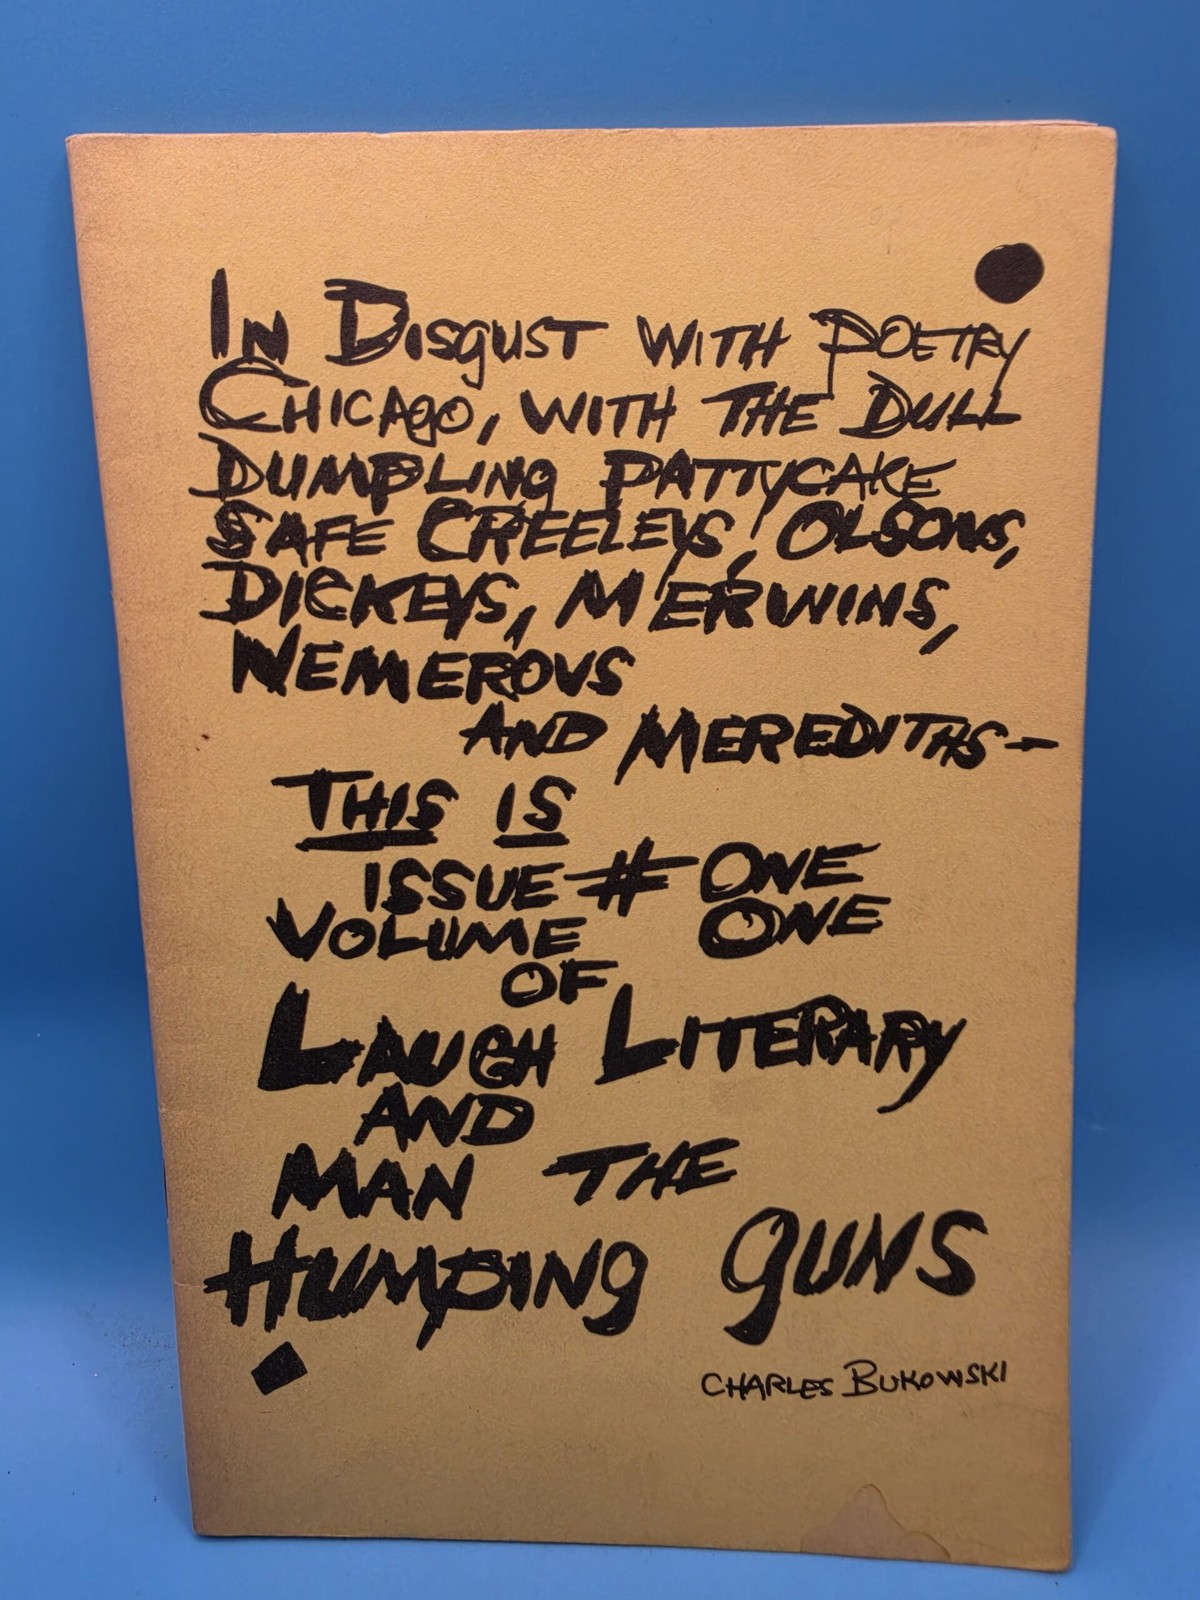 In Disgust with Poetry
Chicago, with the Dull
Dumpling Pattycake
Safe Creeleys, Olsons,
Dickeys, Merwins,
Nemerovs
and Merediths—
This is
issue # One
Volume One
of
Laugh Literary
and
Man the
Humping Guns
Charles Bukowski